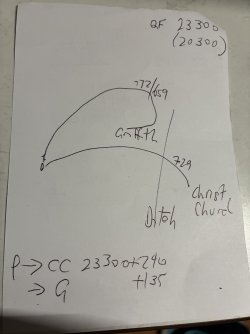 QF 23300
(20300)
772/
659
Griffith
729
Christ
Church
Ditch
P → CC 23300+240
→ G +135